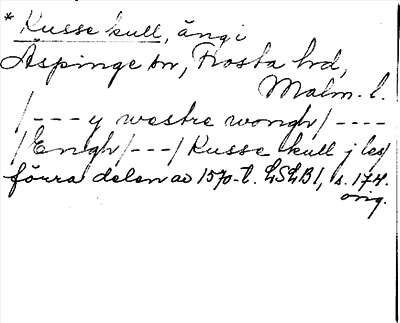 * Kusse kull, äng i
Äspinge sn, Frosta hd,
Malm. l.
/--- y westre wongh/----
/Engh/---/Kusse kull j les/
förra delen av 1570-t. LSLB1, s. 174.
orig.